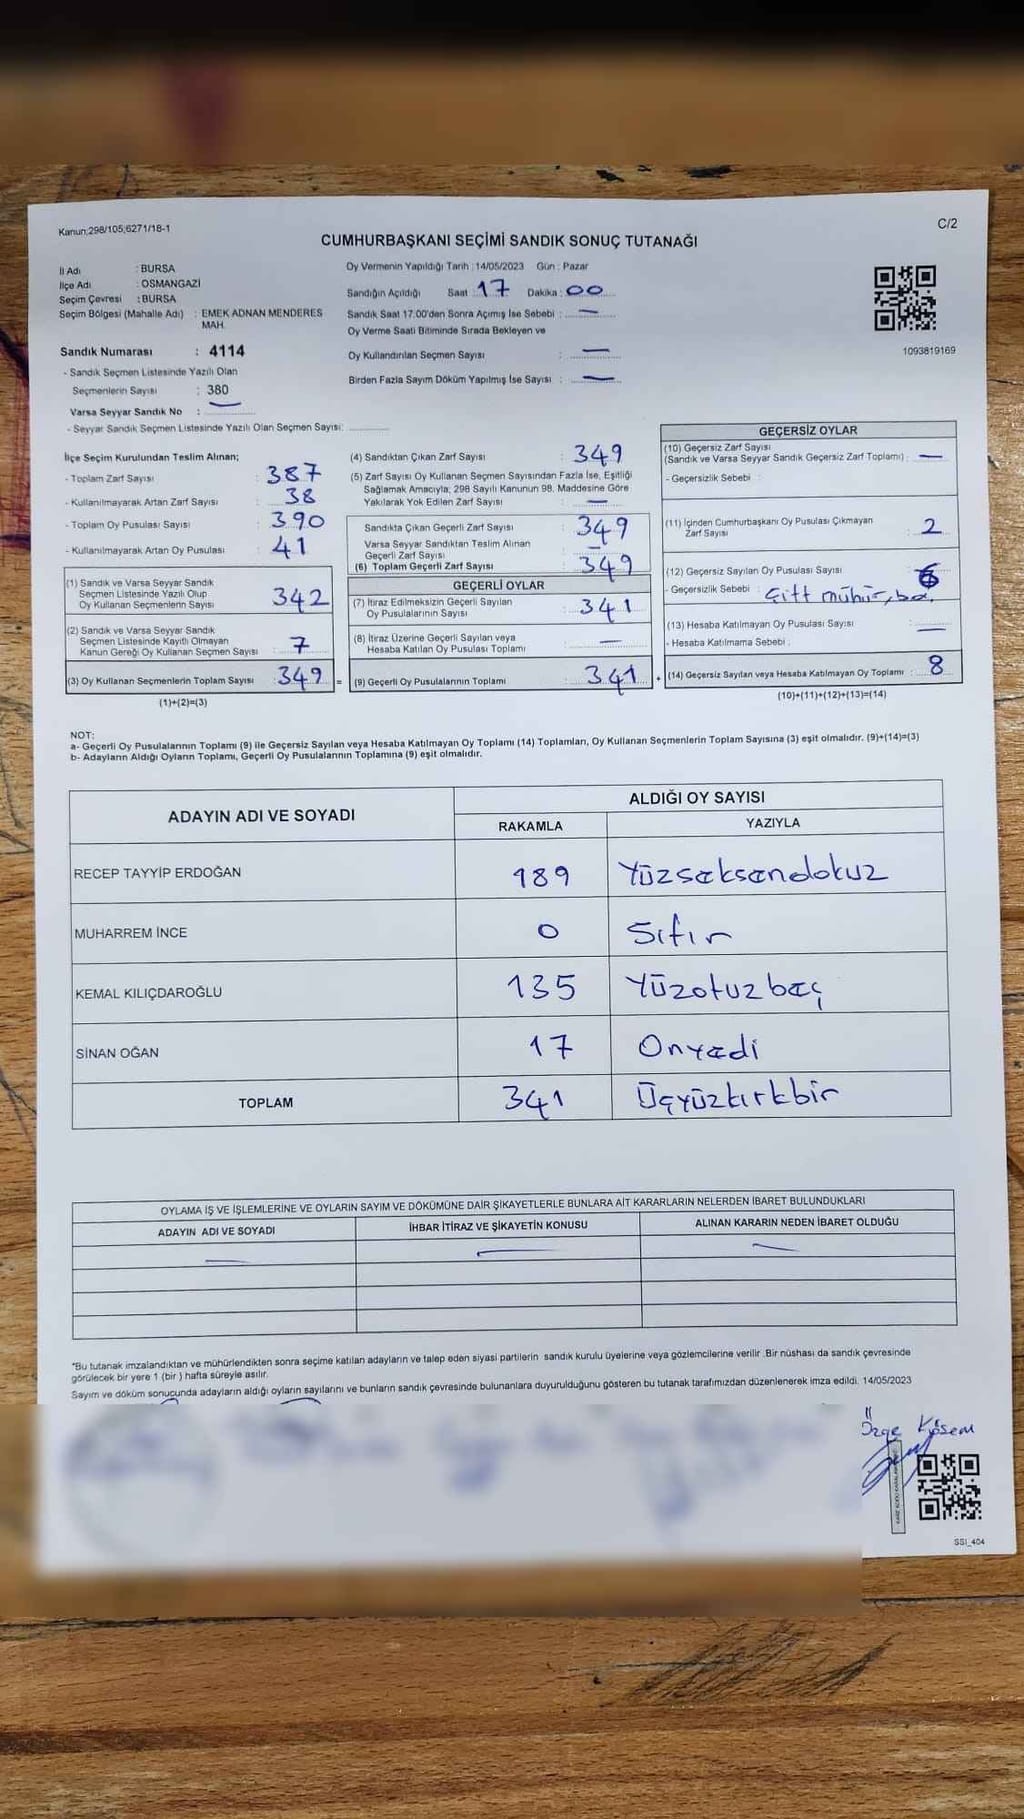 Kanun;298/105;6271/18-1
C/2
CUMHURBAŞKANI SEÇİMİ SANDIK SONUÇ TUTANAĞI
İl Adı : BURSA
İlçe Adı : OSMANGAZİ
Seçim Çevresi : BURSA
Seçim Bölgesi (Mahalle Adı) : EMEK ADNAN MENDERES
MAH.
Sandık Numarası : 4114
- Sandık Seçmen Listesinde Yazılı Olan
Seçmenlerin Sayısı : 380
Varsa Seyyar Sandık No : —
- Seyyar Sandık Seçmen Listesinde Yazılı Olan Seçmen Sayısı:
Oy Vermenin Yapıldığı Tarih : 14/05/2023 Gün : Pazar
Sandığın Açıldığı Saat : 17 Dakika : 00
Sandık Saat 17:00'den Sonra Açımış İse Sebebi : —
Oy Verme Saati Bitiminde Sırada Bekleyen ve
Oy Kullandırılan Seçmen Sayısı : —
Birden Fazla Sayım Döküm Yapılmış İse Sayısı : —
1093819169
İlçe Seçim Kurulundan Teslim Alınan;
- Toplam Zarf Sayısı : 387
- Kullanılmayarak Artan Zarf Sayısı : 38
- Toplam Oy Pusulası Sayısı : 390
- Kullanılmayarak Artan Oy Pusulası : 41
(1) Sandık ve Varsa Seyyar Sandık
Seçmen Listesinde Yazılı Olup
Oy Kullanan Seçmenlerin Sayısı : 342
(2) Sandık ve Varsa Seyyar Sandık
Seçmen Listesinde Kayıtlı Olmayan
Kanun Gereği Oy Kullanan Seçmen Sayısı : 7
(3) Oy Kullanan Seçmenlerin Toplam Sayısı : 349 =
(1)+(2)=(3)
(4) Sandıktan Çıkan Zarf Sayısı : 349
(5) Zarf Sayısı Oy Kullanan Seçmen Sayısından Fazla İse, Eşitliği
Sağlamak Amacıyla, 298 Sayılı Kanunun 98. Maddesine Göre
Yakılarak Yok Edilen Zarf Sayısı : —
Sandıkta Çıkan Geçerli Zarf Sayısı : 349
Varsa Seyyar Sandıktan Teslim Alınan
Geçerli Zarf Sayısı : —
(6) Toplam Geçerli Zarf Sayısı : 349
GEÇERLİ OYLAR
(7) İtiraz Edilmeksizin Geçerli Sayılan
Oy Pusulalarının Sayısı : 341
(8) İtiraz Üzerine Geçerli Sayılan veya
Hesaba Katılan Oy Pusulası Toplamı : —
(9) Geçerli Oy Pusulalarının Toplamı : 341 +
GEÇERSİZ OYLAR
(10) Geçersiz Zarf Sayısı
(Sandık ve Varsa Seyyar Sandık Geçersiz Zarf Toplamı) : —
- Geçersizlik Sebebi :
(11) İçinden Cumhurbaşkanı Oy Pusulası Çıkmayan
Zarf Sayısı : 2
(12) Geçersiz Sayılan Oy Pusulası Sayısı : 6
- Geçersizlik Sebebi : Çift mühür,
(13) Hesaba Katılmayan Oy Pusulası Sayısı : —
- Hesaba Katılmama Sebebi :
(14) Geçersiz Sayılan veya Hesaba Katılmayan Oy Toplamı : 8
(10)+(11)+(12)+(13)=(14)
NOT:
a- Geçerli Oy Pusulalarının Toplamı (9) ile Geçersiz Sayılan veya Hesaba Katılmayan Oy Toplamı (14) Toplamları, Oy Kullanan Seçmenlerin Toplam Sayısına (3) eşit olmalıdır. (9)+(14)=(3)
b- Adayların Aldığı Oyların Toplamı, Geçerli Oy Pusulalarının Toplamına (9) eşit olmalıdır.
ADAYIN ADI VE SOYADI
ALDIĞI OY SAYISI
RAKAMLA YAZIYLA
RECEP TAYYİP ERDOĞAN 189 Yüzseksendokuz
MUHARREM İNCE 0 Sıfır
KEMAL KILIÇDAROĞLU 135 Yüzotuzbeş
SİNAN OĞAN 17 Onyedi
TOPLAM 341 Üçyüzkırkbir
OYLAMA İŞ VE İŞLEMLERİNE VE OYLARIN SAYIM VE DÖKÜMÜNE DAİR ŞİKAYETLERLE BUNLARA AİT KARARLARIN NELERDEN İBARET BULUNDUKLARI
ADAYIN ADI VE SOYADI İHBAR İTİRAZ VE ŞİKAYETİN KONUSU ALINAN KARARIN NEDEN İBARET OLDUĞU
— — —
*Bu tutanak imzalandıktan ve mühürlendikten sonra seçime katılan adayların ve talep eden siyasi partilerin sandık kurulu üyelerine veya gözlemcilerine verilir .Bir nüshası da sandık çevresinde
görülecek bir yere 1 (bir ) hafta süreyle asılır.
Sayım ve döküm sonucunda adayların aldığı oyların sayılarını ve bunların sandık çevresinde bulunanlara duyurulduğunu gösteren bu tutanak tarafımızdan düzenlenerek imza edildi. 14/05/2023
Özge Kösem
SSI_404